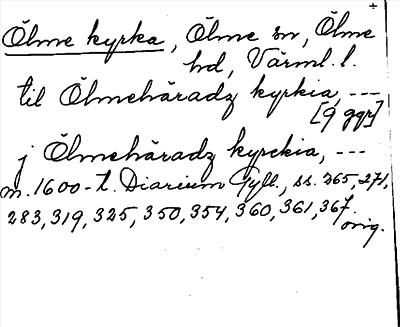 +
Ölme kyrka, Ölme sn, Ölme
hd, Värml. l.
til Ölmehäradz kyrkia, ---
[9 ggr]
j Ölmehäradz kyrckia, ---
m. 1600-t. Diarium Gyll., ss. 265, 271,
283, 319, 325, 350, 354, 360, 361, 367.
orig.